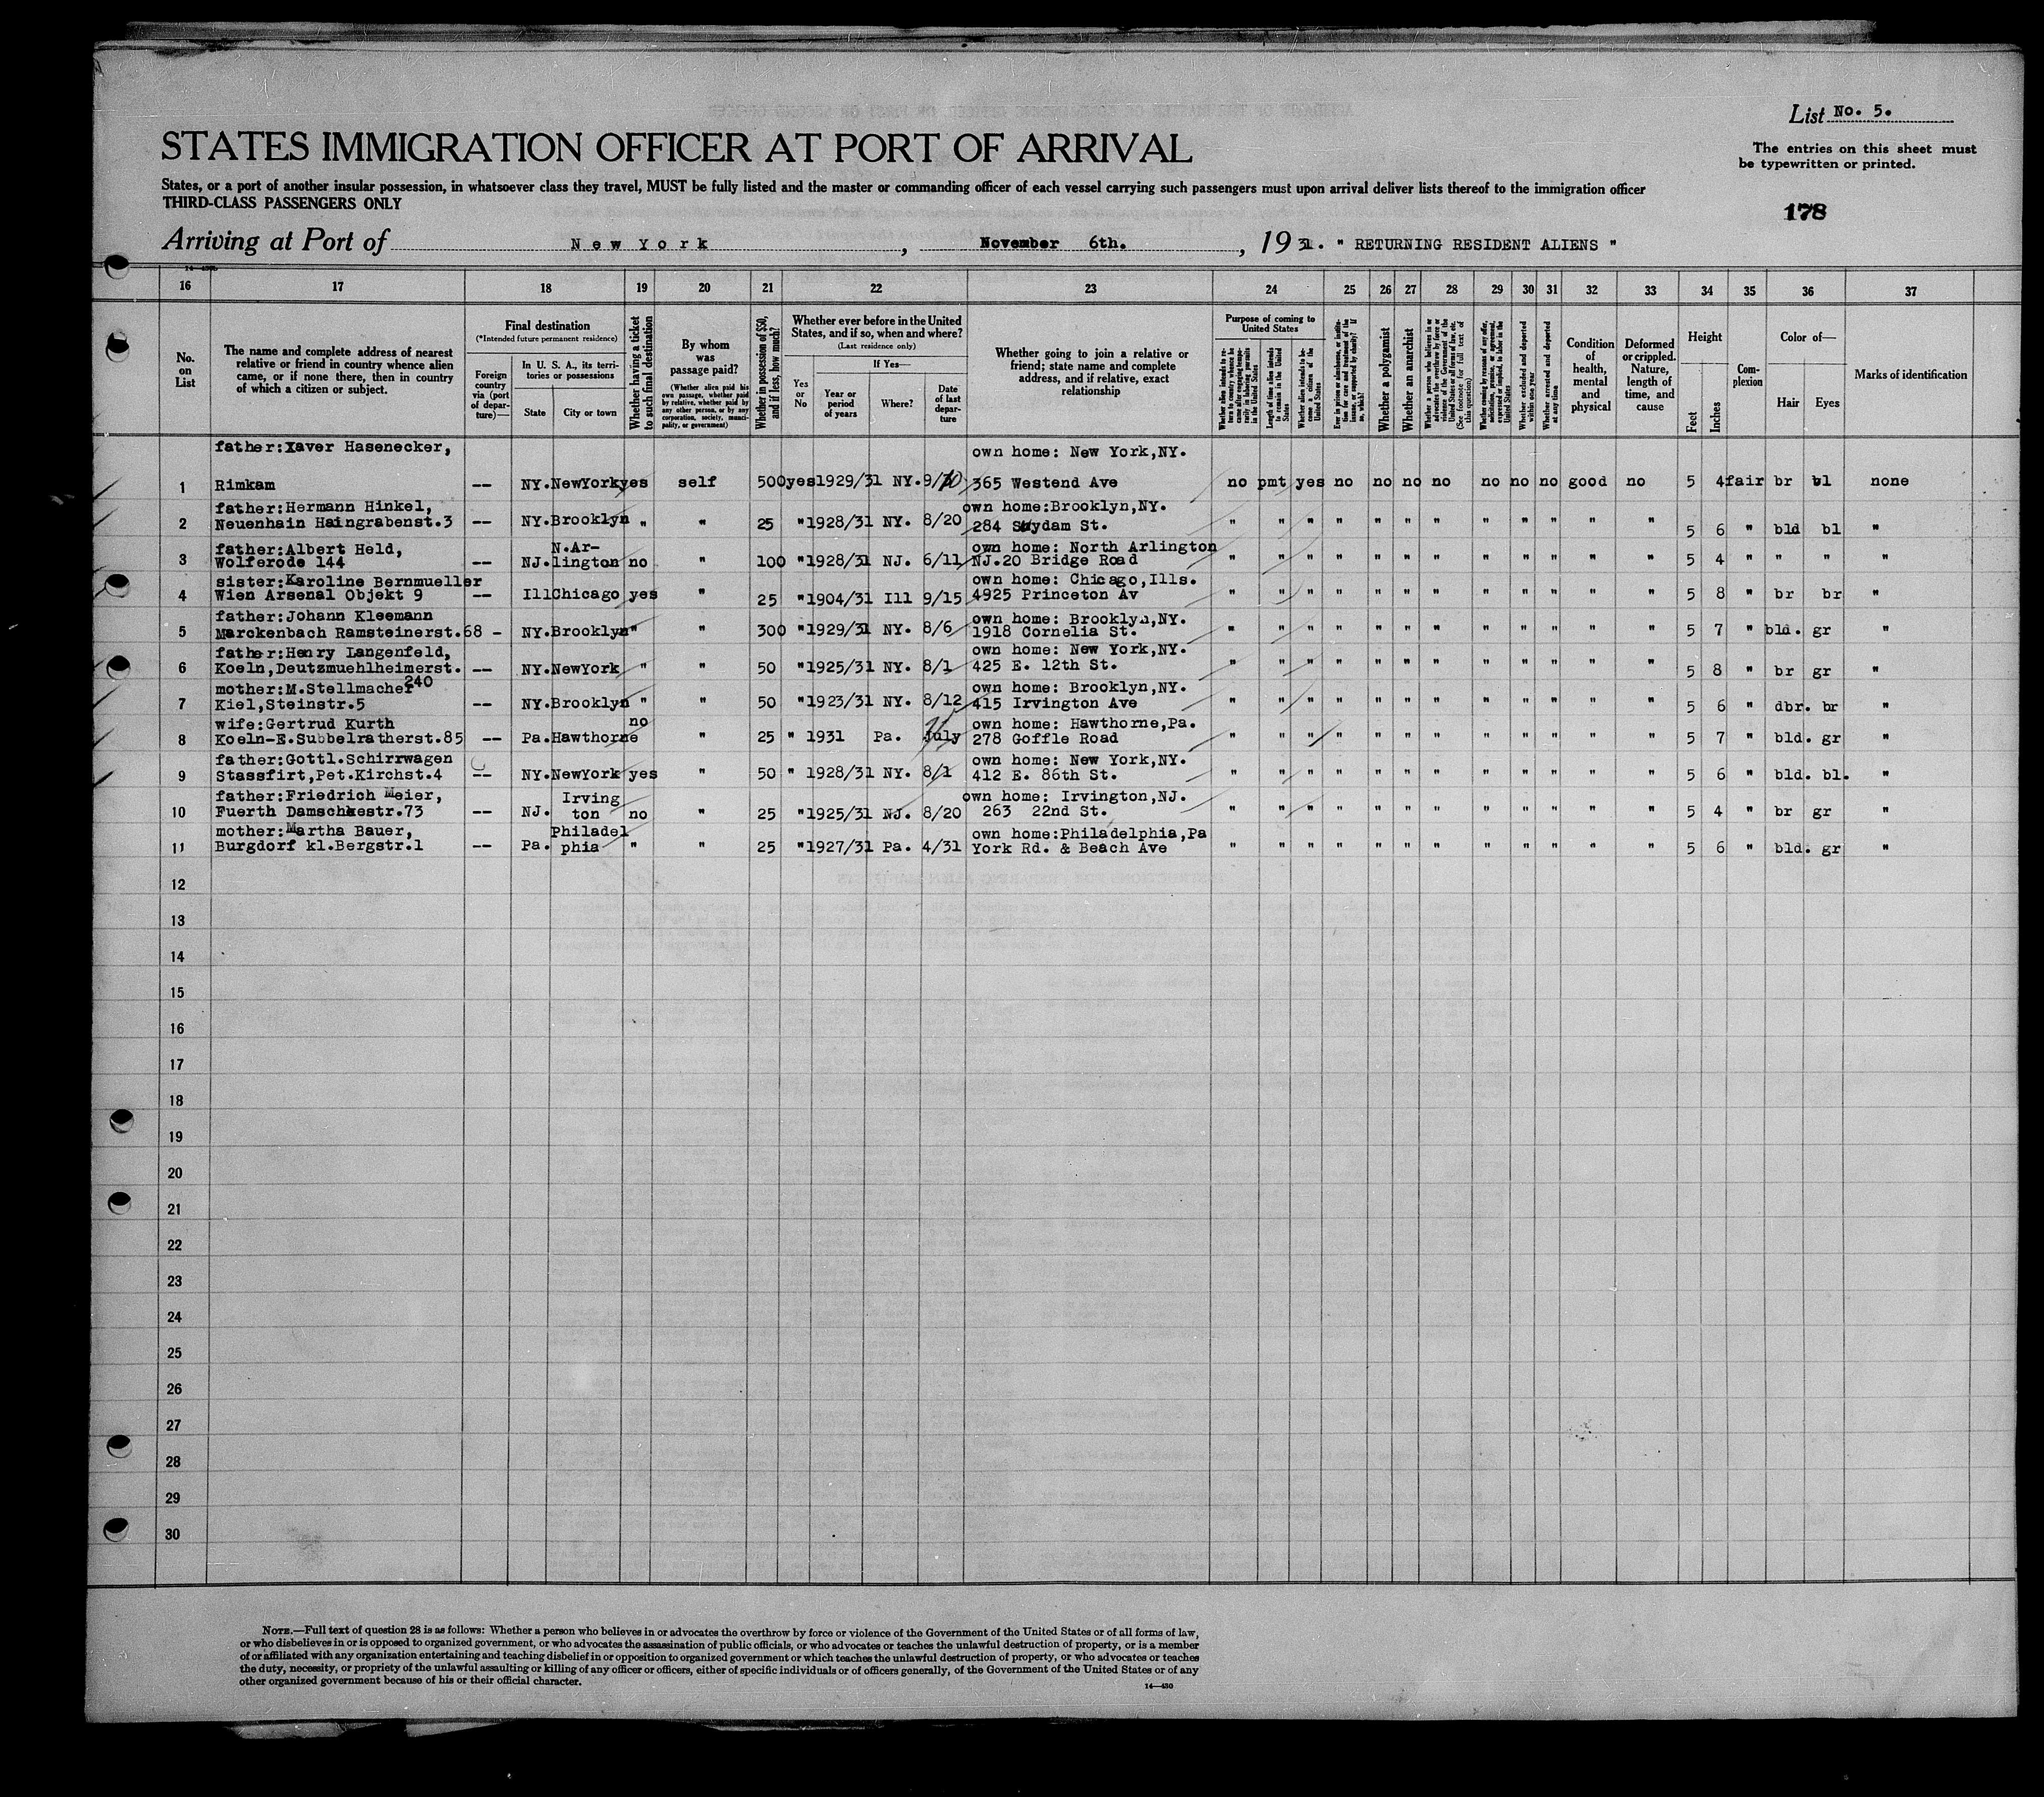 List No. 5.
STATES IMMIGRATION OFFICER AT PORT OF ARRIVAL
The entries on this sheet must
be typewritten or printed.
States, or a port of another insular possession, in whatsoever class they travel, MUST be fully listed and the master or commanding officer of each vessel carrying such passengers must upon arrival deliver lists thereof to the immigration officer
THIRD-CLASS PASSENGERS ONLY
178
Arriving at Port of New York, November 6th., 1931. " RETURNING RESIDENT ALIENS "
16 17 18 19 20 21 22 23 24 25 26 27 28 29 30 31 32 33 34 35 36 37
No. on List
The name and complete address of nearest relative or friend in country whence alien came, or if none there, then in country of which a citizen or subject.
Final destination
(*Intended future permanent residence)
Foreign country via (port of departure)—
In U. S. A., its territories or possessions
State
City or town
Whether having a ticket to such final destination
By whom was passage paid?
(Whether alien paid his own passage, whether paid by relative, whether paid by any other person, or by any corporation, society, municipality, or government)
Whether in possession of $50, and if less, how much?
Whether ever before in the United States, and if so, when and where?
(Last residence only)
Yes or No
If Yes—
Year or period of years
Where?
Date of last departure
Whether going to join a relative or friend; state name and complete address, and if relative, exact relationship
Purpose of coming to United States
Length of time alien intends to remain in the United States
Whether alien intends to become a citizen of the United States
Whether a polygamist
Whether an anarchist
Whether excluded and deported within one year
Whether arrested and deported at any time
Condition of health, mental and physical
Deformed or crippled. Nature, length of time, and cause
Height
Feet
Inches
Complexion
Color of—
Hair
Eyes
Marks of identification
father:Xaver Hasenecker, own home: New York,NY.
1 Rimkam -- NY. NewYork yes self 500 yes 1929/31 NY. 9/10 365 Westend Ave no pmt yes no no no no no no no good no 5 4 fair br bl none
father:Hermann Hinkel, own home:Brooklyn,NY.
2 Neuenhain Haingrabenst.3 -- NY. Brooklyn " " 25 " 1928/31 NY. 8/20 284 Suydam St. " " " " " " " " " " " " 5 6 " bld bl "
father:Albert Held, N.Ar- own home: North Arlington
3 Wolferode 144 -- NJ. lington no " 100 " 1928/31 NJ. 6/11 NJ.20 Bridge Road " " " " " " " " " " " " 5 4 " " " "
sister:Karoline Bernmueller own home: Chicago,Ills.
4 Wien Arsenal Objekt 9 -- Ill Chicago yes " 25 " 1904/31 Ill 9/15 4925 Princeton Av " " " " " " " " " " " " 5 8 " br br "
father:Johann Kleemann own home: Brooklyn,NY.
5 Marckenbach Ramsteinerst.68 - NY. Brooklyn " " 300 " 1929/31 NY. 8/6 1918 Cornelia St. " " " " " " " " " " " " 5 7 " bld. gr "
father:Henry Langenfeld, own home: New York,NY.
6 Koeln,Deutzmuehlheimerst. -- NY. NewYork " " 50 " 1925/31 NY. 8/1 425 E. 12th St. " " " " " " " " " " " " 5 8 " br gr "
240
mother:M.Stellmacher own home: Brooklyn,NY.
7 Kiel,Steinstr.5 -- NY. Brooklyn " " 50 " 1923/31 NY. 8/12 415 Irvington Ave " " " " " " " " " " " " 5 6 " dbr. br "
wife:Gertrud Kurth no own home: Hawthorne,Pa.
8 Koeln-E.Subbelratherst.85 -- Pa. Hawthorne " 25 " 1931 Pa. July 278 Goffle Road " " " " " " " " " " " " 5 7 " bld. gr "
father:Gottl.Schirrwagen own home: New York,NY.
9 Stassfirt,Pet.Kirchst.4 -- NY. NewYork yes " 50 " 1928/31 NY. 8/1 412 E. 86th St. " " " " " " " " " " " " 5 6 " bld. bl. "
father:Friedrich Meier, Irving own home: Irvington,NJ.
10 Fuerth Damschkestr.73 -- NJ. ton no " 25 " 1925/31 NJ. 8/20 263 22nd St. " " " " " " " " " " " " 5 4 " br gr "
mother:Martha Bauer, Philadel own home:Philadelphia,Pa
11 Burgdorf kl.Bergstr.1 -- Pa. phia " " 25 " 1927/31 Pa. 4/31 York Rd. & Beach Ave " " " " " " " " " " " " 5 6 " bld. gr "
12
13
14
15
16
17
18
19
20
21
22
23
24
25
26
27
28
29
30
NOTE.—Full text of question 28 is as follows: Whether a person who believes in or advocates the overthrow by force or violence of the Government of the United States or of all forms of law,
or who disbelieves in or is opposed to organized government, or who advocates the assassination of public officials, or who advocates or teaches the unlawful destruction of property, or is a member
of or affiliated with any organization entertaining and teaching disbelief in or opposition to organized government or which teaches the unlawful destruction of property, or who advocates or teaches
the duty, necessity, or propriety of the unlawful assaulting or killing of any officer or officers, either of specific individuals or of officers generally, of the Government of the United States or of any
other organized government because of his or their official character.
14—430